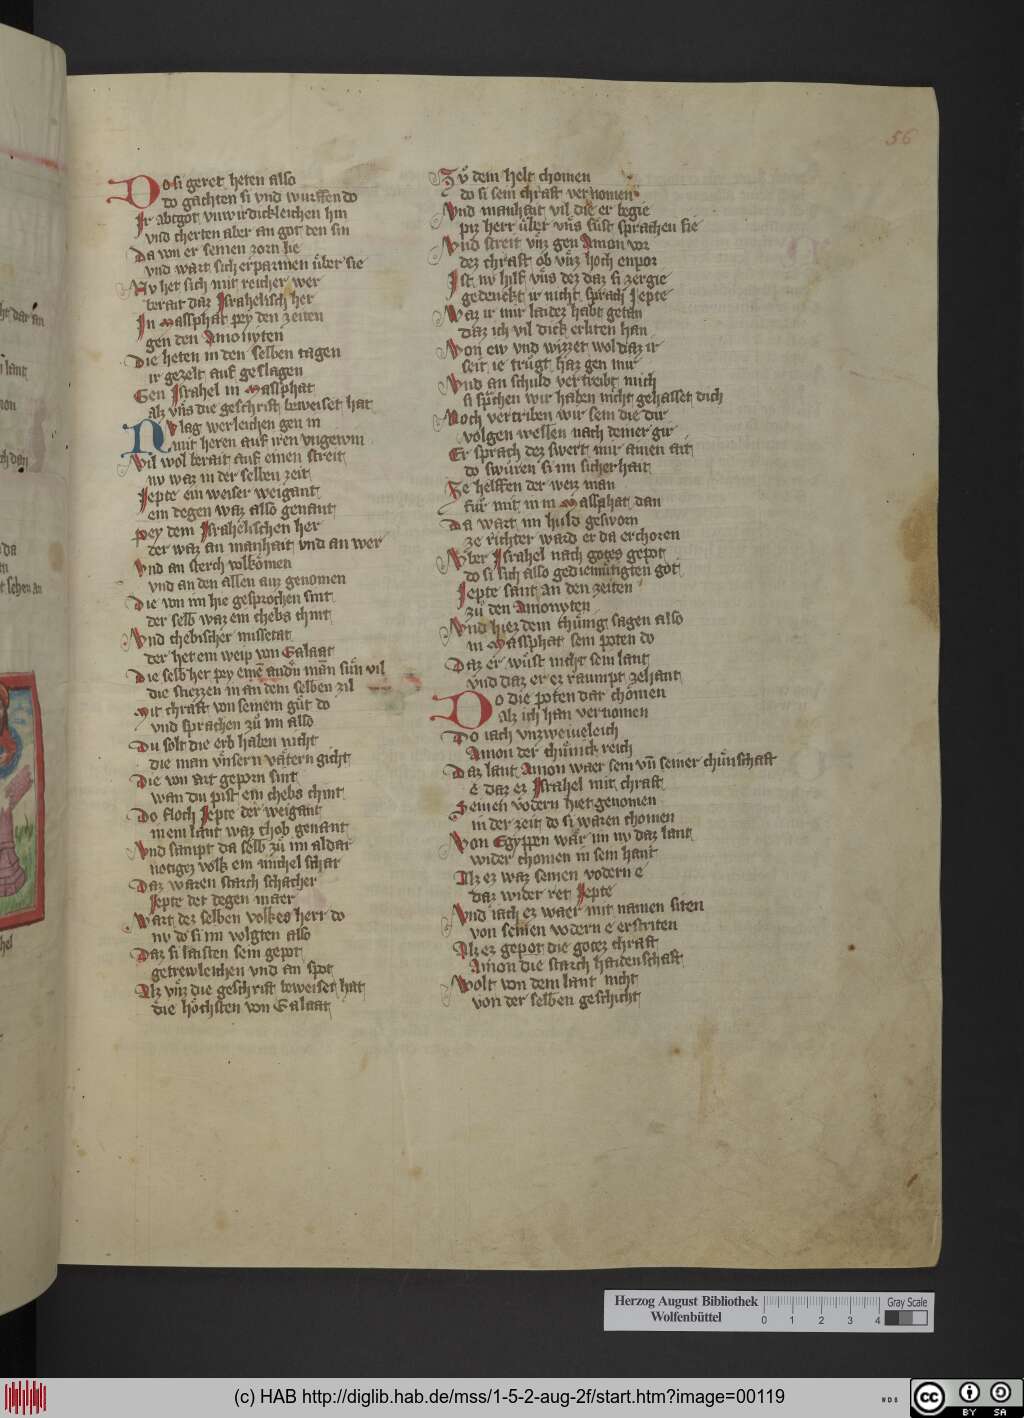 56
Do si geret heten also
do gachten si vnd wurffen do
Ir abtgot vnwirdickleichen hin
vnd cherten aber an got den sin
Da von er seinen zorn lie
vnd wart sich erparmen über sie
Nv het sich mit reicher wer
berait daz Israhelisch her
In Massphat pey den zeiten
gen den Amonyten
Die heten in den selben tagen
ir gezelt auf geslagen
Gen Israhel in Massphat
alz vns die geschrift beweiset hat
Nv lag werleichen gen in
mit heren auf iren vngewin
Vil wol berait auf einen streit
nv waz in der selben zeit
Jepte ein weiser weigant
ein degen waz also genant
Pey dem Israhelischen her
der waz an manhait vnd an wer
Vnd an sterch volkömen
vnd an den allen auz genomen
Die von im hie gesprochen sint
der selb waz ein chebs chint
Vnd chebischer missetat
der het ein weip von Galaat
Die selb her pey eine andn man sün vil
die stiezzen in an dem selben zil
Mit chraft von seinem güt do
vnd sprachen zü im also
Du solt die erb haben nicht
die man vnsern vätern gicht
Die von art geporn sint
wan du pist ein chebs chint
Do floch Jepte der weigant
in ein lant waz chob genant
Vnd sampt da selb zü im aldar
nötigez volk ein michel schar
Daz waren starch schacher
Jepte der degen maer
Wart dez selben volkes herr do
nv do si im volgten also
Daz si laisten sein gepot
getrewleichen vnd an spot
Alz vnz die geschrift beweiset hat
die höchsten von Galaat
Zü dem helt chomen
do si sein chraft vernomen
Vnd manhait vil die er begie
piz herr über vns sust sprachen sie
Vnd streit vnz gen Amon vor
dez chraft ob vnz hoch enpor
Ist nv hilf vns dez daz si zergie
gedenckt ir nicht sprach Jepte
Waz ir mir laidez habt getan
daz ich vil dick erliten han
Von ew vnd wizzet wol daz ir
seit ie trügt haz gen mir
Vnd an schuld vertreibt mich
si sprachen wir haben nicht gehasset dich
Noch vertriben wir sein die dir
volgen wellen nach deiner gir
Er sprach dez swert mir ainen ait
do swüren si im sicherhait
Ze helffen der weiz man
für mit in in Massphat dan
Da wart im huld gesworn
ze richter ward er da erchoren
Vber Israhel nach gotes gepot
do si sich also gediemütigten got
Jepte sant an den zeiten
zü den Amonyten
Vnd hiez dem chünig sagen also
in Massphat sein poten do
Daz er wüst nicht sein lant
vnd daz er ez raumpt zehant
Do die poten dar chomen
alz ich han vernomen
Do iach vnzweiueleich
Amon der chünick reich
Daz lant Amon waer sein vn seiner chünschaft
e daz er Israhel mit chraft
Seinen vodern hiet genomen
in der zeit do si waren chomen
Von Egyppen waer im nv daz lant
wider chomen in sein hant
Alz ez waz seinen vodern e
daz wider ret Jepte
Vnd iach ez waer mit namen siten
von seinen vodern e erstriten
Alz ez gepot die gotez chraft
Amon die starch haidenschaft
Wolt von dem lant nicht
von der selben geschicht
ht dar an
lant
non
ch dan
da
t sehen an
hel
Herzog August Bibliothek
Wolfenbüttel
0 1 2 3 4
Gray Scale
(c) HAB http://diglib.hab.de/mss/1-5-2-aug-2f/start.htm?image=00119
WD6
cc BY SA